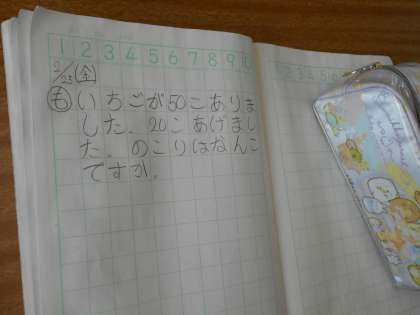 1 2 3 4 5 6 7 8 9
2/25(金)
も いちごが50こありま
した。20こあげまし
た。のこりはなんこ
ですか。